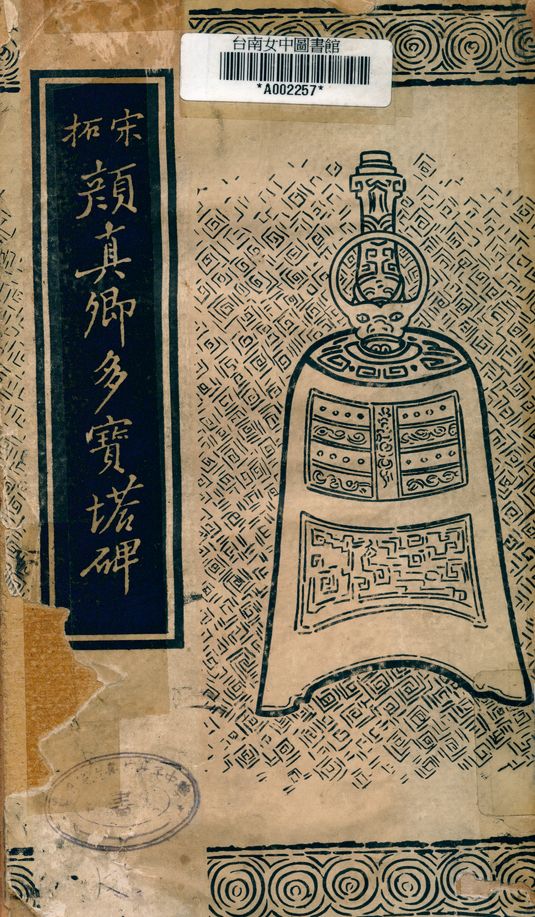 台南女中圖書館
*A002257*
宋拓
顏真卿多寶塔碑